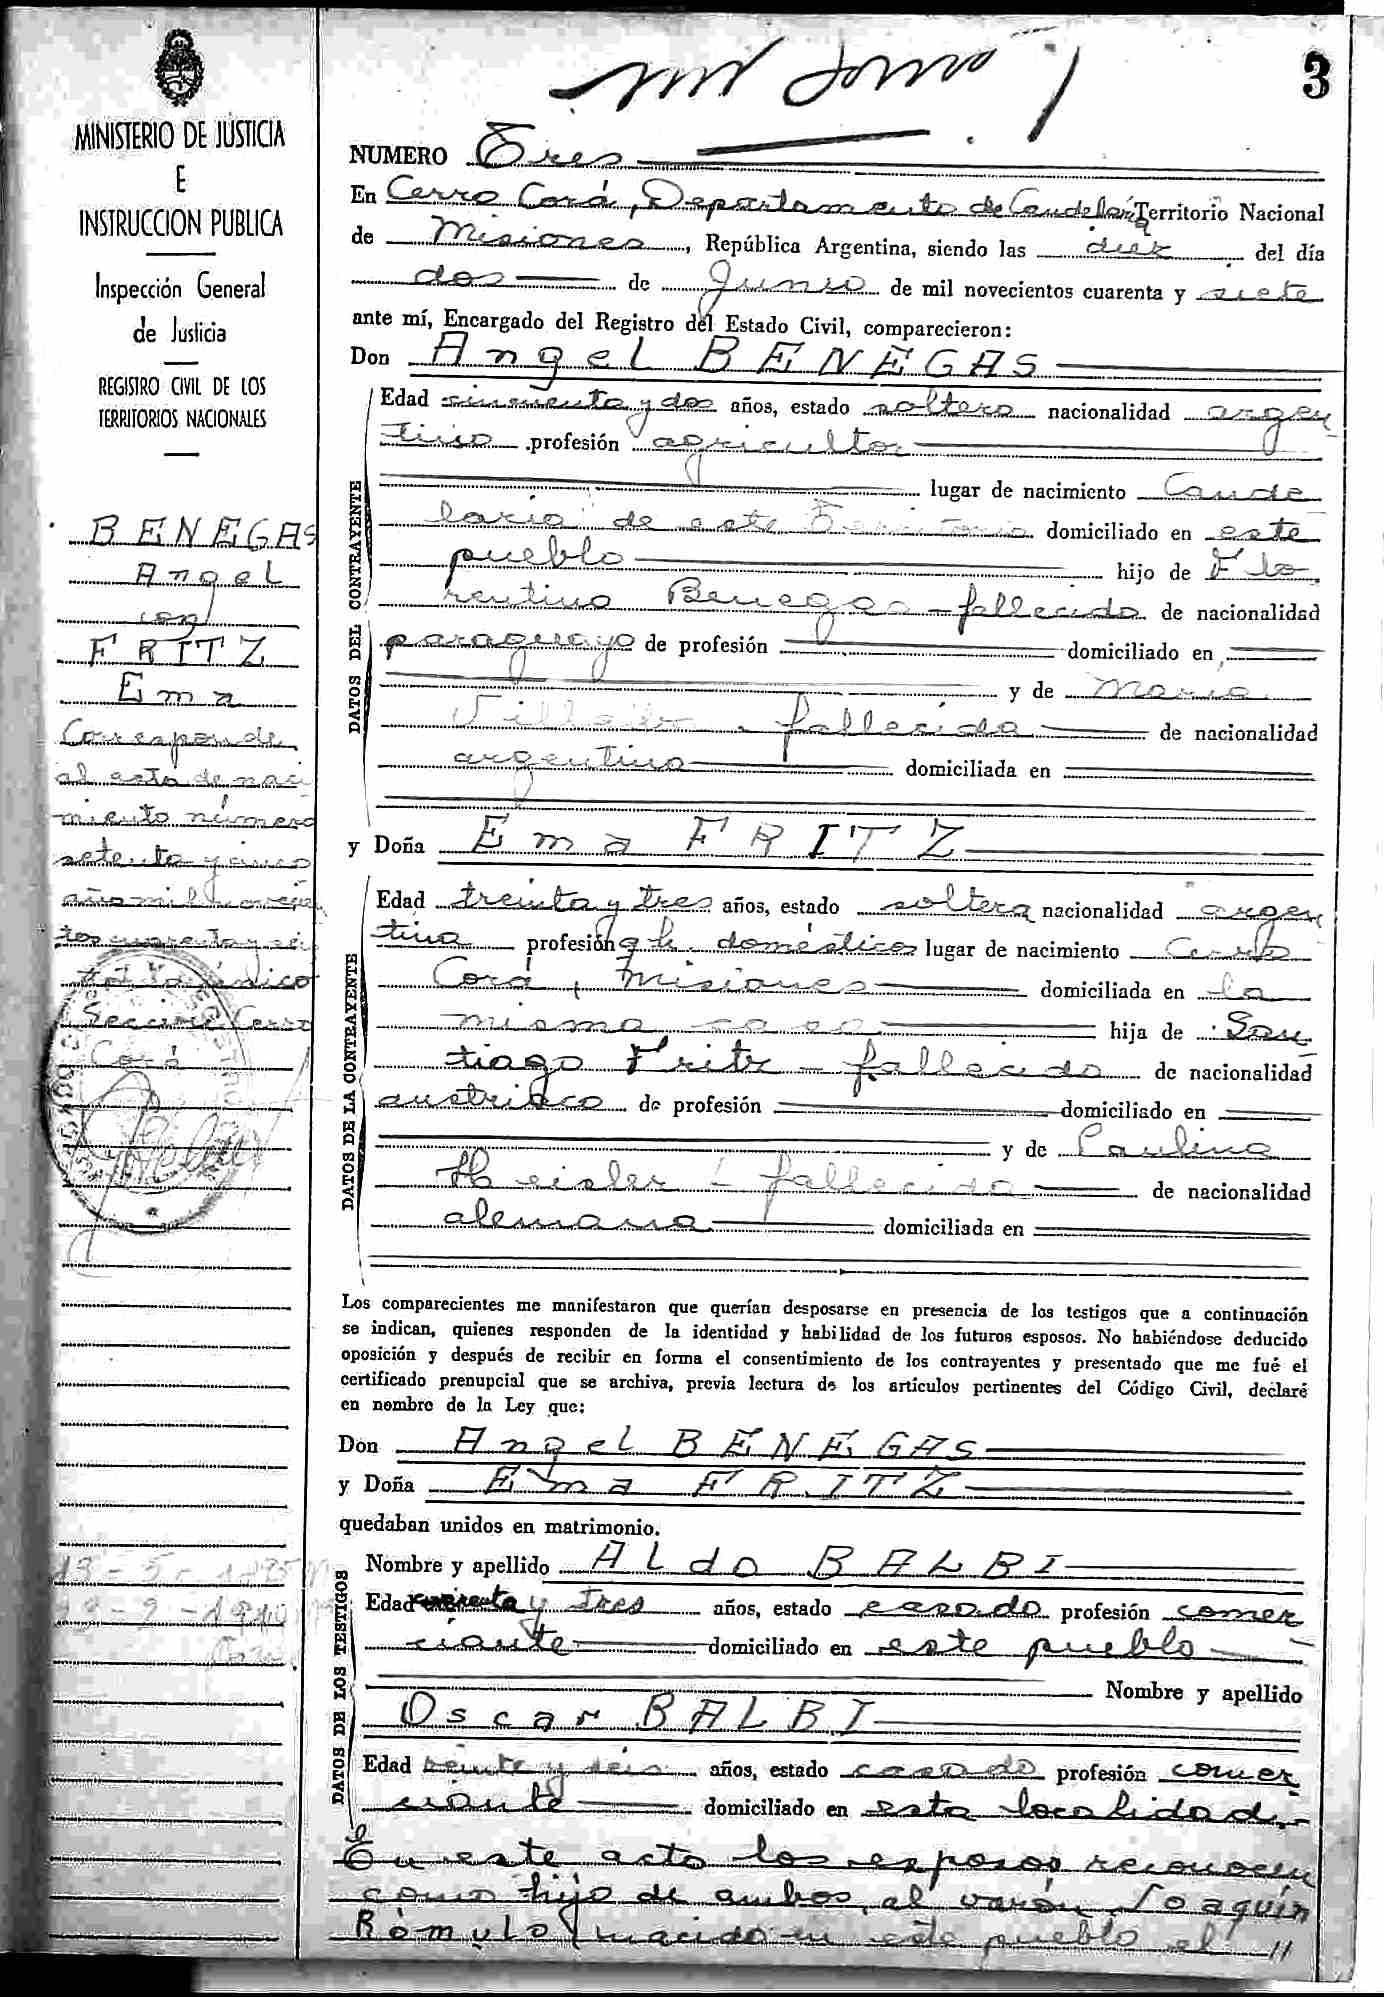 3
MINISTERIO DE JUSTICIA
E
INSTRUCCION PUBLICA
Inspección General
de Justicia
REGISTRO CIVIL DE LOS
TERRITORIOS NACIONALES
BENEGAS
Angel
con
FRITZ
Ema
Corresponde
al acta de naci
miento número
setenta y cinco
año mil novecien
tos cuarenta y seis
Sección Cerro
Corá
NUMERO Tres
En Cerro Corá, Departamento de Candelaria Territorio Nacional
de Misiones, República Argentina, siendo las diez del día
dos de Junio de mil novecientos cuarenta y siete
ante mí, Encargado del Registro del Estado Civil, comparecieron:
Don Angel BENEGAS
DATOS DEL CONTRAYENTE
Edad cincuenta y dos años, estado soltero nacionalidad argen
tino profesión agricultor
lugar de nacimiento Cande
laria de este Territorio domiciliado en este
pueblo hijo de Flo
rentino Benegas - fallecido de nacionalidad
paraguayo de profesión domiciliado en
y de Maria
fallecida de nacionalidad
argentina domiciliada en
y Doña Ema FRITZ
DATOS DE LA CONTRAYENTE
Edad treinta y tres años, estado soltera nacionalidad argen
tina profesión q. h. domésticos lugar de nacimiento Cerro
Corá, Misiones domiciliada en la
misma casa hija de San
tiago Fritz - fallecido de nacionalidad
austriaco de profesión domiciliado en
y de Paulina
Heisler - fallecida de nacionalidad
alemana domiciliada en
Los comparecientes me manifestaron que querían desposarse en presencia de los testigos que a continuación
se indican, quienes responden de la identidad y habilidad de los futuros esposos. No habiéndose deducido
oposición y después de recibir en forma el consentimiento de los contrayentes y presentado que me fué el
certificado prenupcial que se archiva, previa lectura de los artículos pertinentes del Código Civil, declaré
en nombre de la Ley que:
Don Angel BENEGAS
y Doña Ema FRITZ
quedaban unidos en matrimonio.
DATOS DE LOS TESTIGOS
Nombre y apellido Aldo BALBI
Edad y tres años, estado casado profesión comer
ciante domiciliado en este pueblo
Nombre y apellido
Oscar BALBI
Edad veinte y seis años, estado casado profesión comer
ciante domiciliado en esta localidad.-
En este acto los esposos reconocen
como hijo de ambos, al varón Joaquín
Rómulo, nacido en este pueblo el //